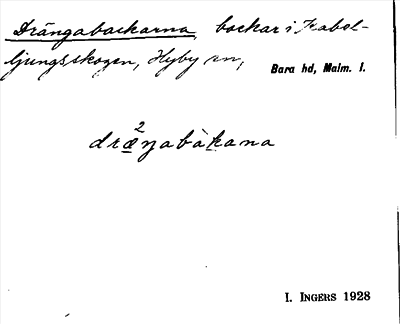 Drängabackarna, backar i Kabel-
ljungsskogen, Hyby sn,
Bara hd, Malm. l.
dræ²ŋabàkana
I. INGERS 1928